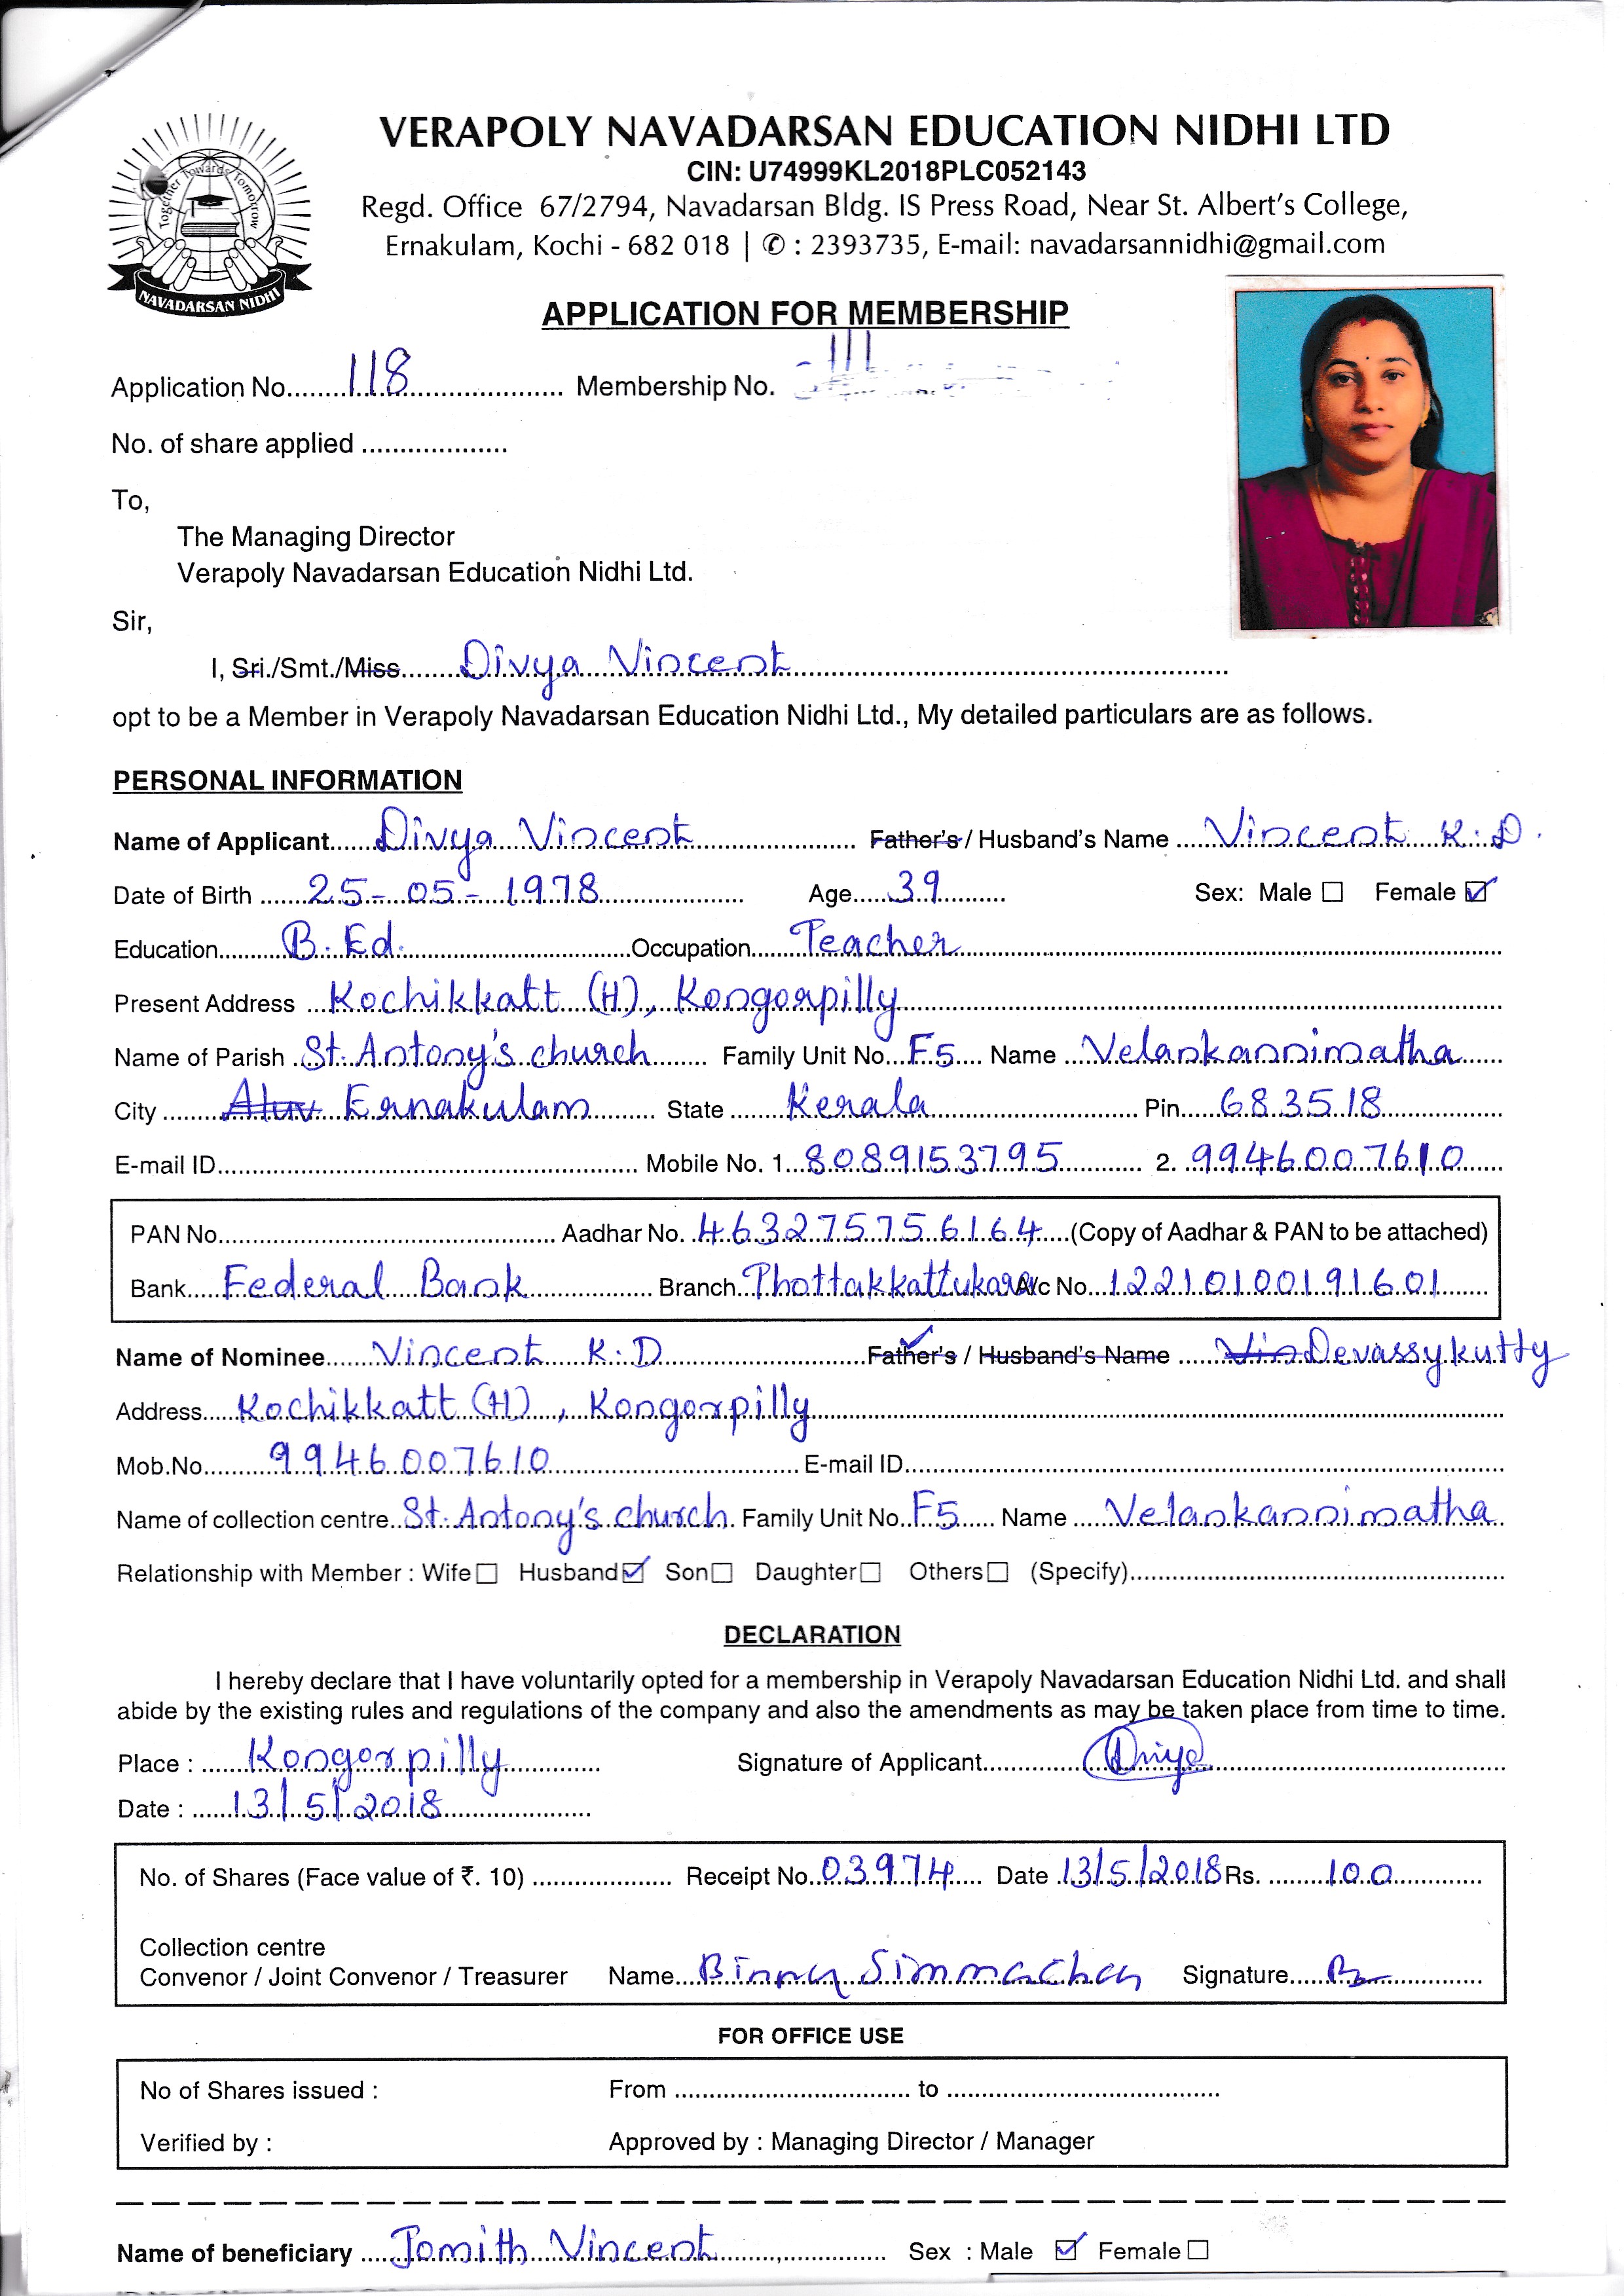 VERAPOLY NAVADARSAN EDUCATION NIDHI LTD
CIN: U74999KL2018PLC052143
Regd. Office 67/2794, Navadarsan Bldg. IS Press Road, Near St. Albert's College,
Ernakulam, Kochi - 682 018 | ✆ : 2393735, E-mail: navadarsannidhi@gmail.com
Together Towards Tomorrow
NAVADARSAN NIDHI
APPLICATION FOR MEMBERSHIP
Application No. 118 Membership No. 111
No. of share applied
To,
The Managing Director
Verapoly Navadarsan Education Nidhi Ltd.
Sir,
I, Sri./Smt./Miss Divya Vincent
opt to be a Member in Verapoly Navadarsan Education Nidhi Ltd., My detailed particulars are as follows.
PERSONAL INFORMATION
Name of Applicant Divya Vincent Father's / Husband's Name Vincent K.D.
Date of Birth 25-05-1978 Age 39 Sex: Male ☐ Female ☑
Education B.Ed. Occupation Teacher
Present Address Kochikkatt (H), Kongorpilly
Name of Parish St. Antony's church Family Unit No. F5 Name Velankannimatha
City Aluv Ernakulam State Kerala Pin 683518
E-mail ID Mobile No. 1. 8089153795 2. 9946007610
PAN No. Aadhar No. 463275756164 (Copy of Aadhar & PAN to be attached)
Bank Federal Bank Branch Thottakkattukara A/c No. 12210100191601
Name of Nominee Vincent K.D Father's / Husband's Name Vin Devassykutty
Address Kochikkatt (H), Kongorpilly
Mob.No. 9946007610 E-mail ID
Name of collection centre St. Antony's church Family Unit No. F5 Name Velankannimatha
Relationship with Member : Wife ☐ Husband ☑ Son ☐ Daughter ☐ Others ☐ (Specify)
DECLARATION
I hereby declare that I have voluntarily opted for a membership in Verapoly Navadarsan Education Nidhi Ltd. and shall
abide by the existing rules and regulations of the company and also the amendments as may be taken place from time to time.
Place : Kongorpilly Signature of Applicant Divya
Date : 13/5/2018
No. of Shares (Face value of ₹. 10) Receipt No. 03974 Date 13/5/2018 Rs. 100
Collection centre
Convenor / Joint Convenor / Treasurer Name Binny Simmachan Signature
FOR OFFICE USE
No of Shares issued : From to
Verified by : Approved by : Managing Director / Manager
Name of beneficiary Jomith Vincent Sex : Male ☑ Female ☐